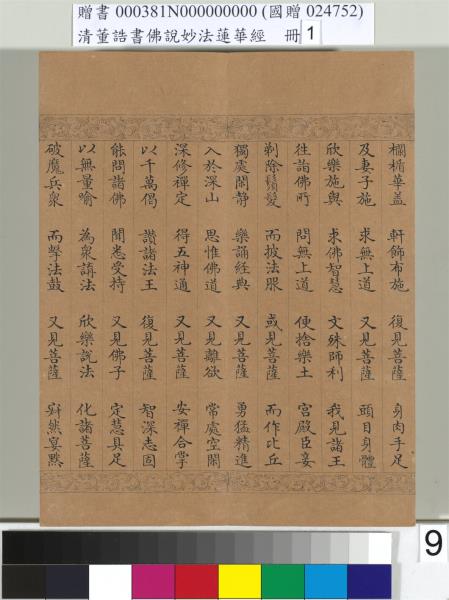 贈書 000381N000000000 (國贈 024752)
清董誥書佛說妙法蓮華經 冊 1
欄楯華蓋 軒飾布施 復見菩薩 身肉手足
及妻子施 求無上道 又見菩薩 頭目身體
欣樂施與 求佛智慧 文殊師利 我見諸王
往詣佛所 問無上道 便捨樂土 宮殿臣妾
剃除鬚髮 而披法服 或見菩薩 而作比丘
獨處閒靜 樂誦經典 又見菩薩 勇猛精進
入於深山 思惟佛道 又見離欲 常處空閒
深修禪定 得五神通 又見菩薩 安禪合掌
以千萬偈 讚諸法王 復見菩薩 智深志固
能問諸佛 聞悉受持 又見佛子 定慧具足
以無量喻 為眾講法 欣樂說法 化諸菩薩
破魔兵眾 而擊法鼓 又見菩薩 寂然宴默
9